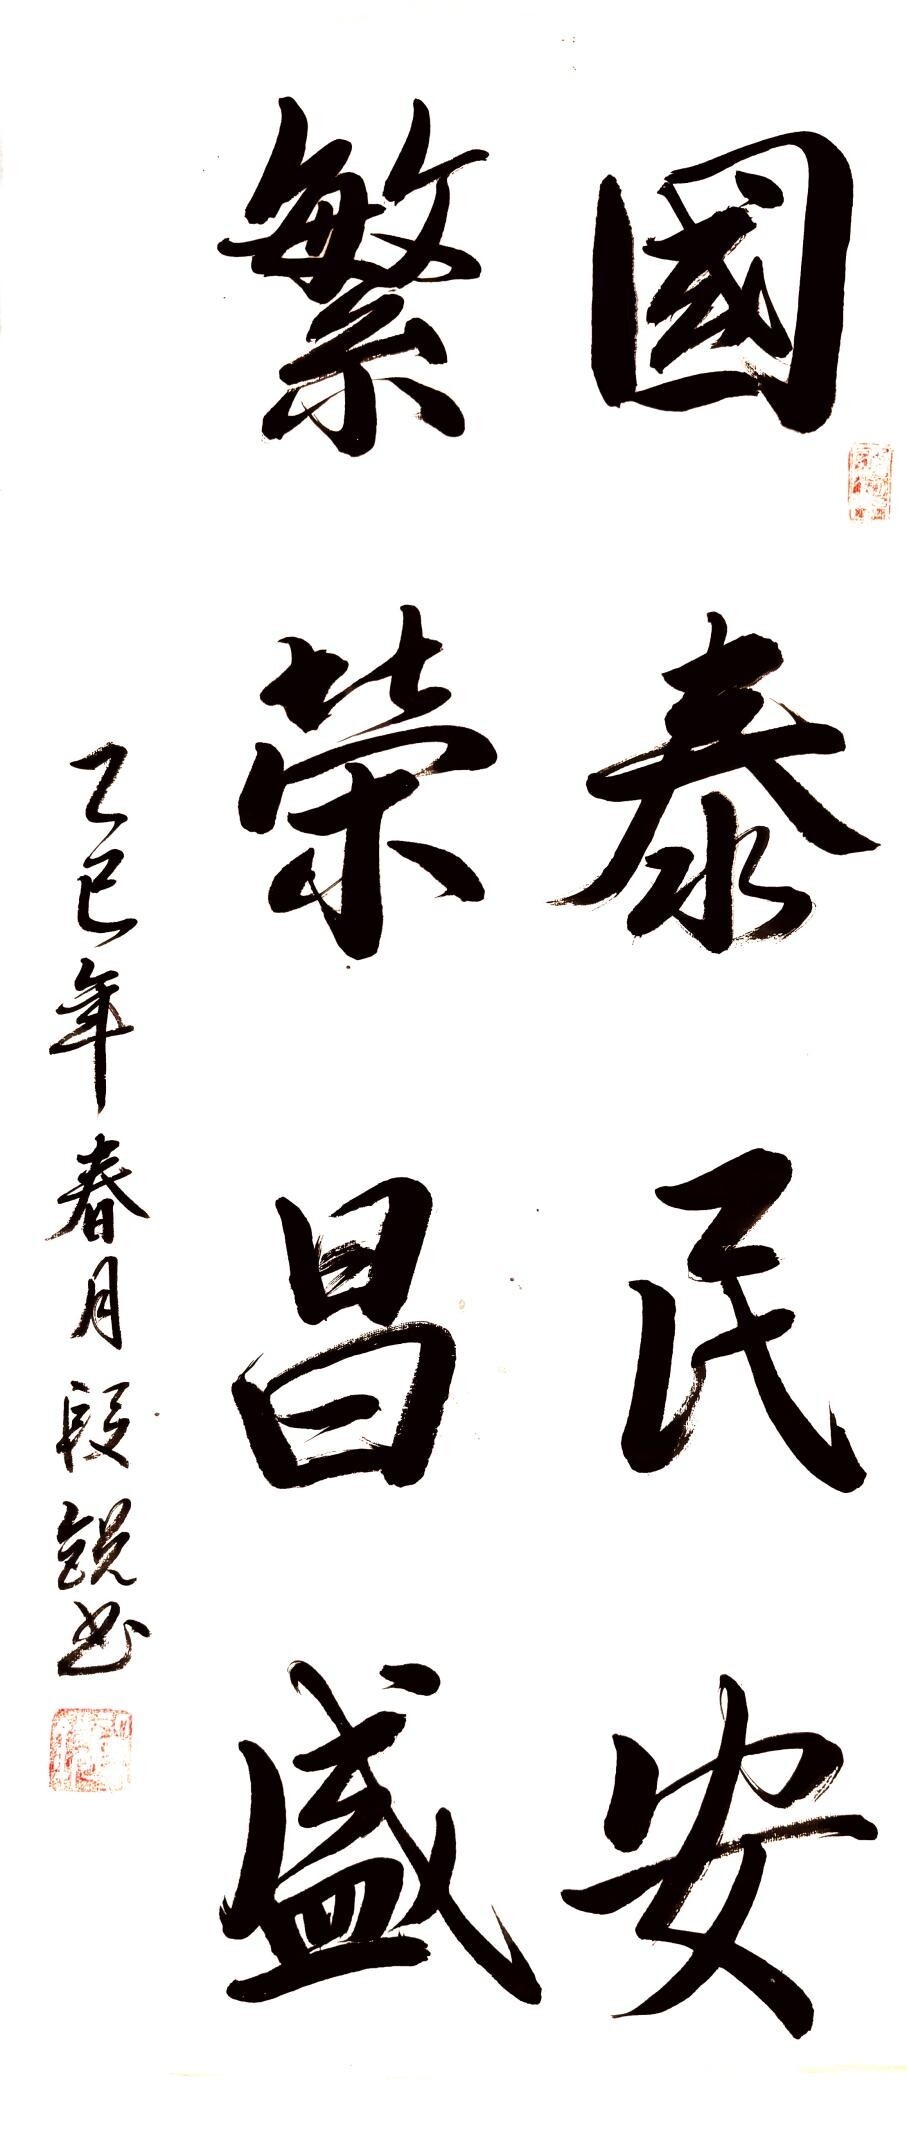 國泰民安
繁荣昌盛
乙巳年春月段锐书